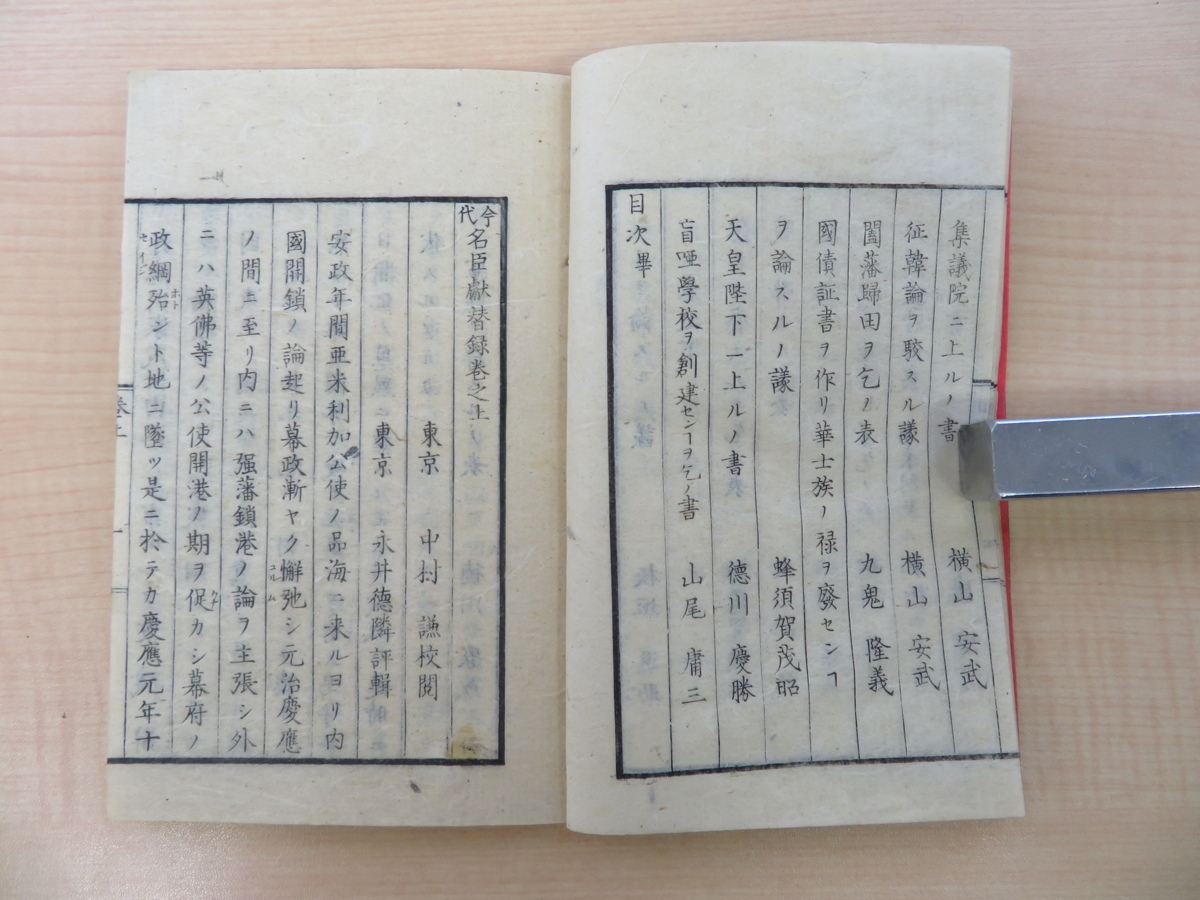 集議院ニ上ルノ書 横山 安武
征韓論ヲ駁スル議 横山 安武
闔藩歸田ヲ乞ノ表 九鬼 隆義
國債証書ヲ作リ華士族ノ禄ヲ廢センヿ
ヲ論スルノ議 蜂須賀茂昭
天皇陛下ニ上ルノ書 德川 慶勝
盲唖學校ヲ創建センヿヲ乞ノ書 山尾 庸三
目次畢
今代名臣獻替録巻之上
東京 中村 謙校閲
東京 永井德隣評輯
安政年間亜米利加公使ノ品海ニ来ルヨリ内
國開鎖ノ論起リ幕政漸ヤク懈弛シ元治慶應
ノ間ニ至リ内ニハ强藩鎖港ノ論ヲ主張シ外
ニハ英佛等ノ公使開港ノ期ヲ促カシ幕府ノ
政綱殆ント地ニ墜ツ是ニ於テカ慶應元年十